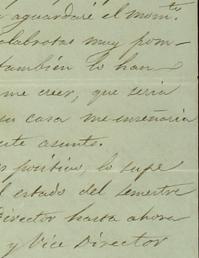 aguardaré el momto.
palabrotas muy pom-
también lo han
me creer, que seria
su casa me enseñaria
este asunto.
político, lo supe
el estado del semestre
Director hasta ahora
y Vice Director